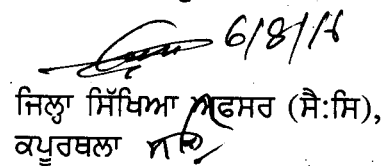 6/8/16
ਜਿਲ੍ਹਾ ਸਿੱਖਿਆ ਅਫਸਰ (ਸੈ:ਸਿ),
ਕਪੂਰਥਲਾ